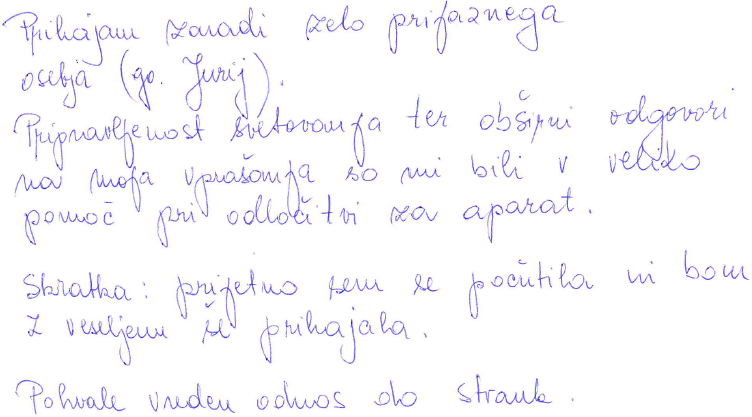 Prihajam zaradi zelo prijaznega
osebja (go. Jurij).
Pripravljenost svetovanja ter obširni odgovori
na moja vprašanja so mi bili v veliko
pomoč pri odločitvi za aparat.
Skratka: prijetno sem se počutila in bom
z veseljem še prihajala.
Pohvale vreden odnos do strank.